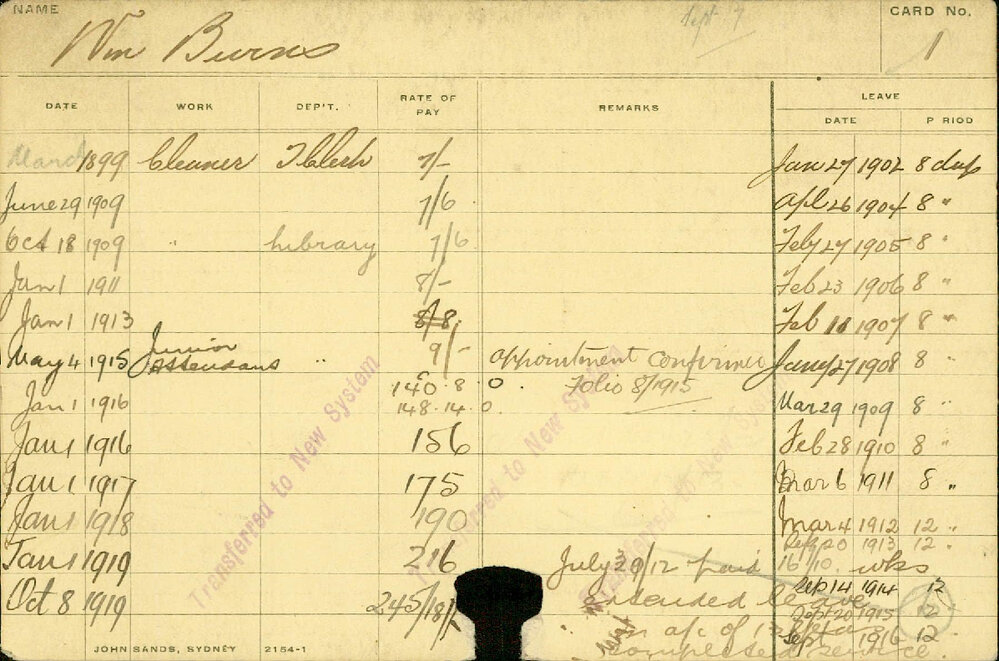 NAME
Wm Burns
Sept 7
CARD No.
1
DATE WORK DEP'T. RATE OF PAY REMARKS LEAVE
DATE P RIOD
March 1899 Cleaner 7/- Jan 27 1902 8 days
June 29 1909 7/6 Apl 26 1904 8 "
Oct 18 1909 " Library 7/6 Feby 27 1905 8 "
Jan 1 1911 8/- Feb 23 1906 8 "
Jan 1 1913 8/8 Feb 11 1907 8 "
May 4 1915 Junior Attendant " 9/- Appointment confirmed Jany 27 1908 8 "
140.8.0 Folio 8/1915
Jan 1 1916 148.14.0 Mar 29 1909 8 "
Jan 1 1916 156 Feb 28 1910 8 "
Jan 1 1917 175 Mar 6 1911 8 "
Jan 1 1918 190 Mar 4 1912 12 "
Sep 20 1913 12 "
Jan 1 1919 216 July 30/12 paid 16/10 wks
Sep 14 1914 12
Oct 8 1919 245/18/ extended leave
Sept 20 1915 12
on a/c of
Sept 1916 12
completed service.
Transferred to New System
Transferred to New System
Transferred to New System
JOHN SANDS, SYDNEY 2154-1